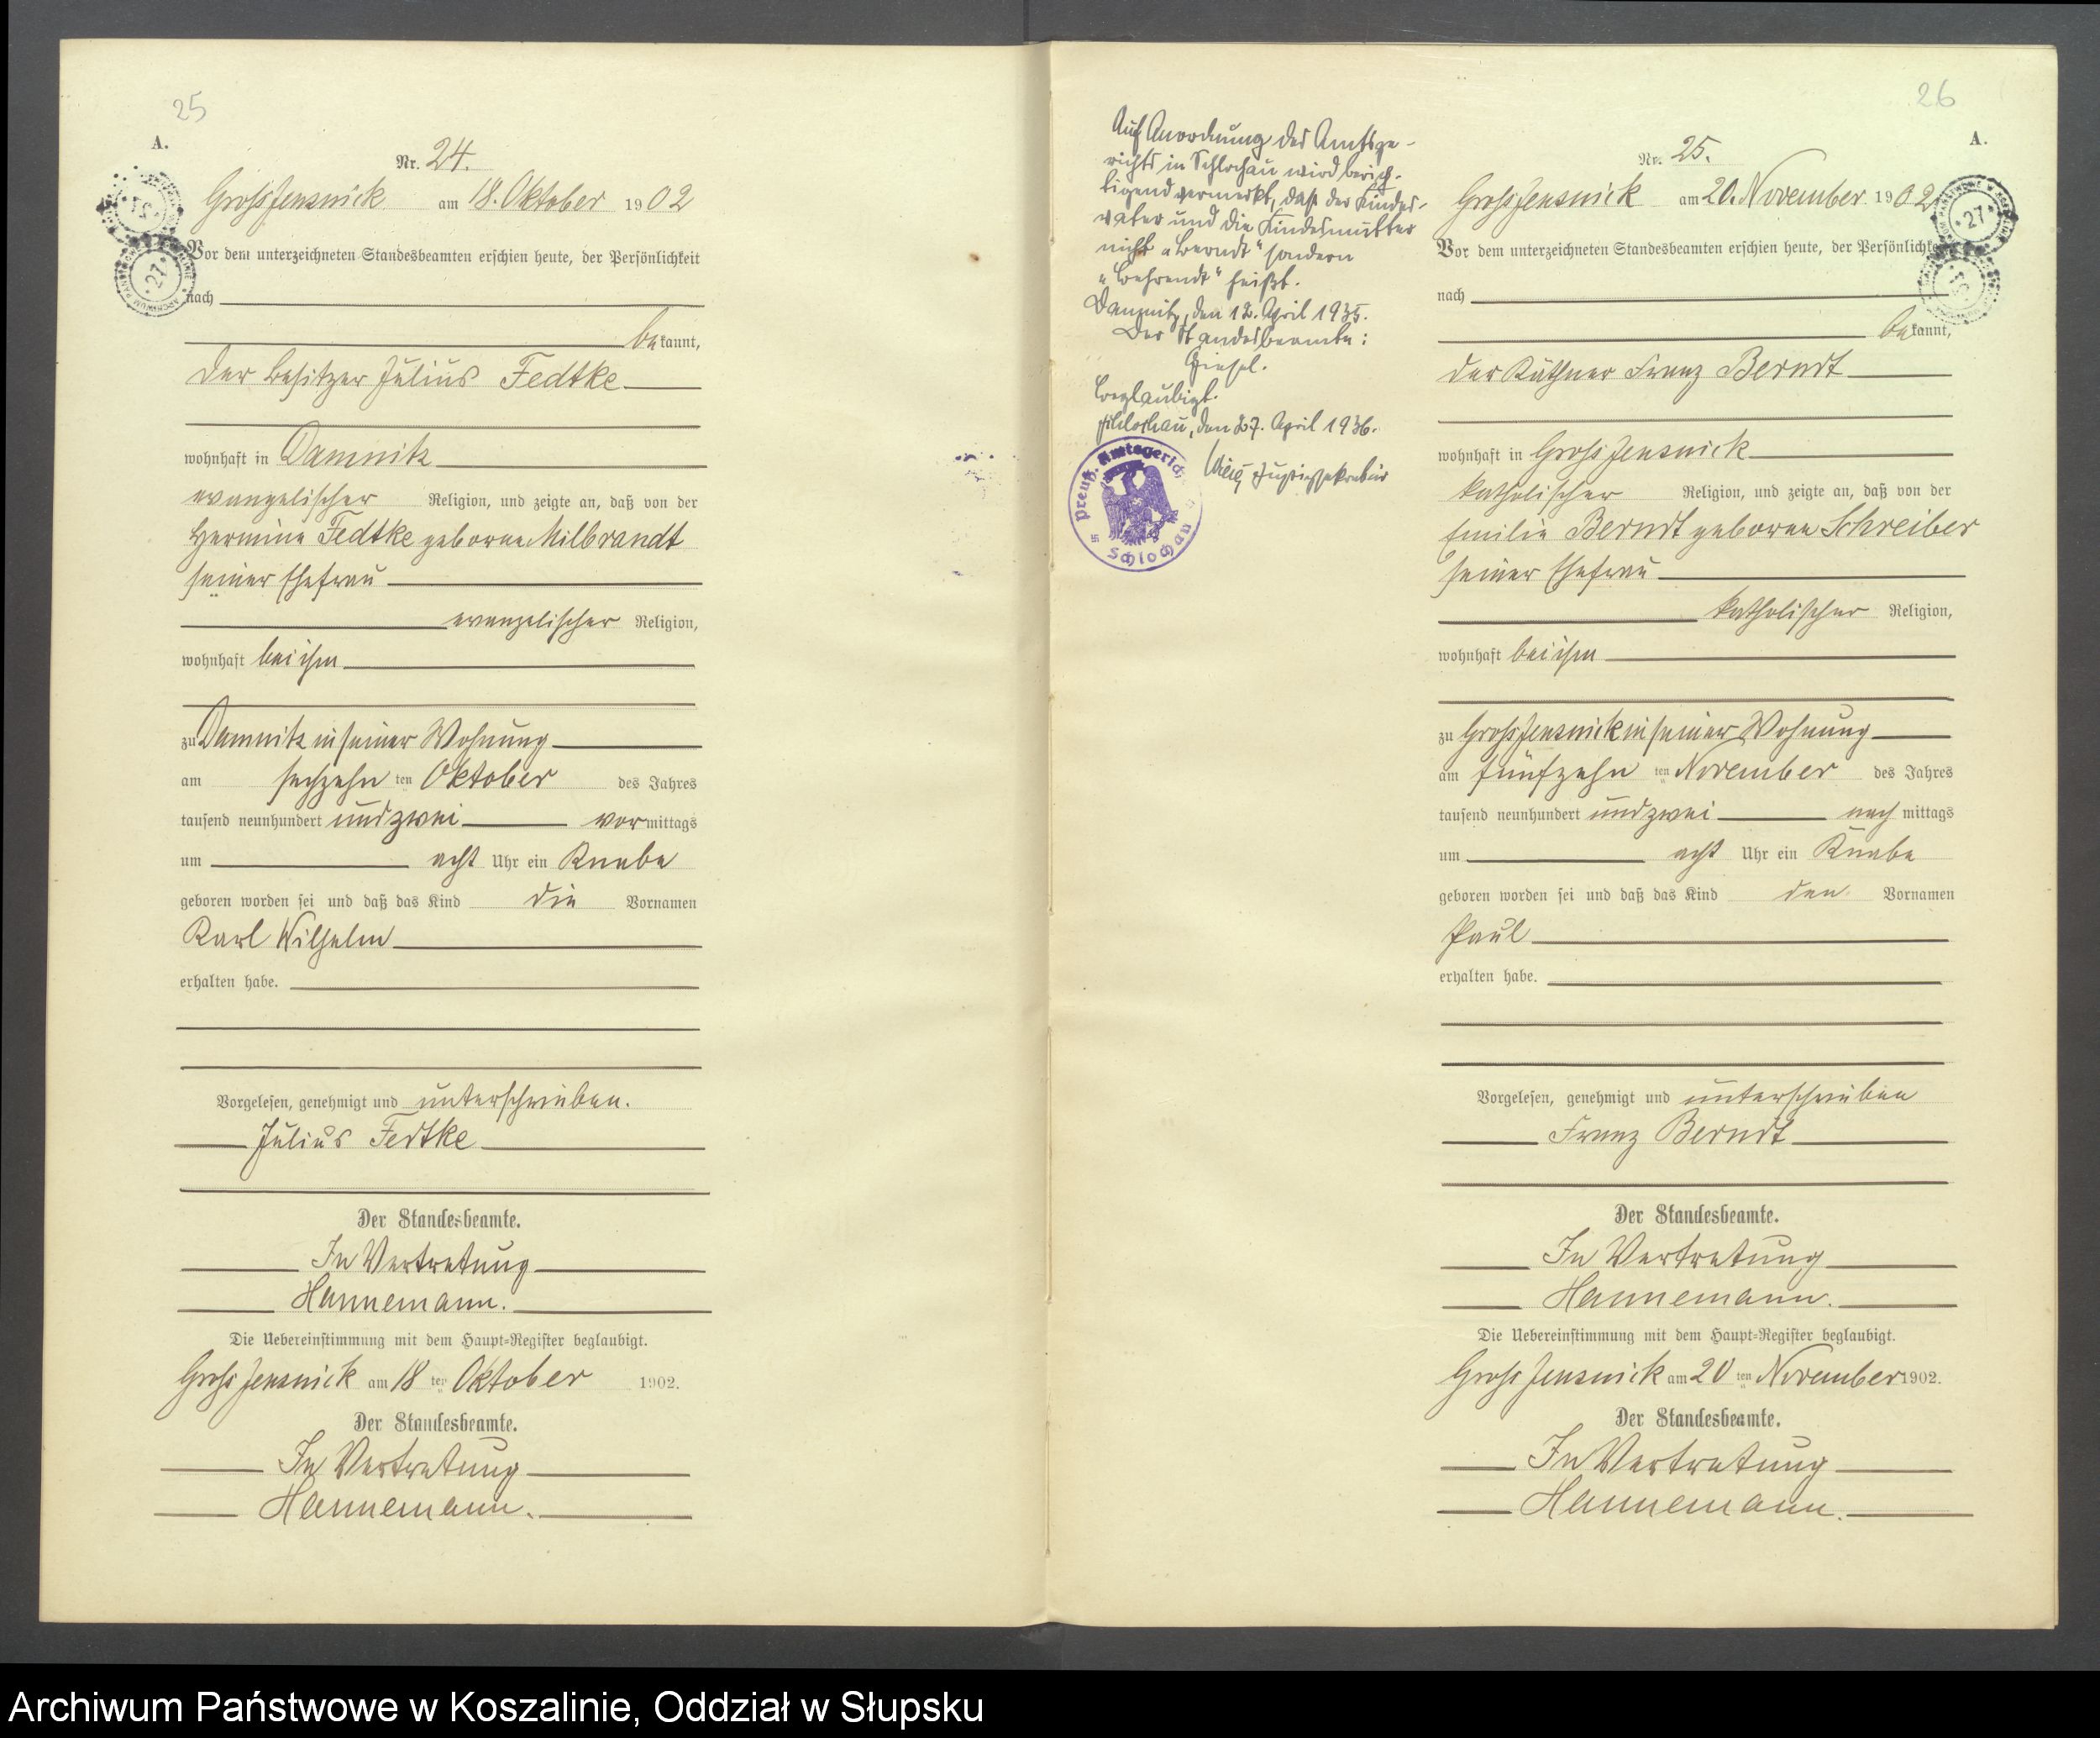 25
A.
Nr. 24.
Gross Jensnick am 18. Oktober 1902
Vor dem unterzeichneten Standesbeamten erschien heute, der Persönlichkeit
nach
bekannt,
der Besitzer Julius Fedtke
wohnhaft in Damnitz
evangelischer Religion, und zeigte an, daß von der
Hermine Fedtke geborne Milbrandt
seiner Ehefrau
evangelischer Religion,
wohnhaft bei ihm
zu Damnitz in seiner Wohnung
am sechzehn ten Oktober des Jahres
tausend neunhundert und zwei vormittags
um acht Uhr ein Knabe
geboren worden sei und daß das Kind die Vornamen
Karl Wilhelm
erhalten habe.
Vorgelesen, genehmigt und unterschrieben.
Julius Fedtke
Der Standesbeamte.
In Vertretung
Hannemann.
Die Uebereinstimmung mit dem Haupt-Register beglaubigt.
Gross Jensnick am 18 ten Oktober 1902.
Der Standesbeamte.
In Vertretung
Hannemann.
Auf Anordnung des Amtsge-
richts in Schlochau wird berich-
tigend vermerkt, daß der Kindes-
vater und die Kindesmutter
nicht „Berndt“ sondern
„Behrendt“ heißt.
Damnitz, den 12. April 1935.
Der Standesbeamte:
Giesel.
Beglaubigt.
Schlochau, den 27. April 1936.
Justizsekretär
Preuß. Amtsgericht
Schlochau
26
A.
Nr. 25.
Gross Jensnick am 20. November 1902
Vor dem unterzeichneten Standesbeamten erschien heute, der Persönlichkeit
nach
bekannt,
der Käthner Franz Berndt
wohnhaft in Gross Jensnick
katholischer Religion, und zeigte an, daß von der
Emilie Berndt geborne Schreiber
seiner Ehefrau
katholischer Religion,
wohnhaft bei ihm
zu Gross Jensnick in seiner Wohnung
am fünfzehn ten November des Jahres
tausend neunhundert und zwei nach mittags
um acht Uhr ein Knabe
geboren worden sei und daß das Kind den Vornamen
Paul
erhalten habe.
Vorgelesen, genehmigt und unterschrieben
Franz Berndt
Der Standesbeamte.
In Vertretung
Hannemann.
Die Uebereinstimmung mit dem Haupt-Register beglaubigt.
Gross Jensnick am 20 ten November 1902.
Der Standesbeamte.
In Vertretung
Hannemann.
Archiwum Państwowe w Koszalinie, Oddział w Słupsku